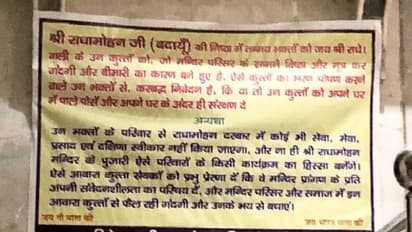 श्री राधामोहन जी (बदायूँ) की निष्ठा में तन्मय भक्तों को जय श्री राधे।
गली के उन कुत्तों को, जो मन्दिर परिसर के सामने विष्ठा और मूत्र कर
गंदगी और बीमारी का कारण बने हुए है, ऐसे कुत्तों का भरण पोषण करने
वाले उन भक्तों से, करबद्ध निवेदन है, कि या तो उन कुत्तों को अपने घर
में पाले पोसें और अपने घर के अंदर ही संरक्षण दे
अन्यथा
उन भक्तों के परिवार से राधामोहन दरबार में कोई भी सेवा, मेवा,
प्रसाद एवं दक्षिणा स्वीकार नहीं किया जाएगा, और ना ही श्री राधामोहन
मन्दिर के पुजारी ऐसे परिवारों के किसी कार्यक्रम का हिस्सा बनेंगे।
ऐसे आवारा कुत्ता सेवकों को प्रभु प्रेरणा दें कि वे मन्दिर प्रांगण के प्रति
अपनी संवेदनशीलता का परिचय दें, और मन्दिर परिसर और समाज में इन
आवारा कुत्तों से फैल रही गंदगी और उनके भय से बचाएं।
जय गौ माता की